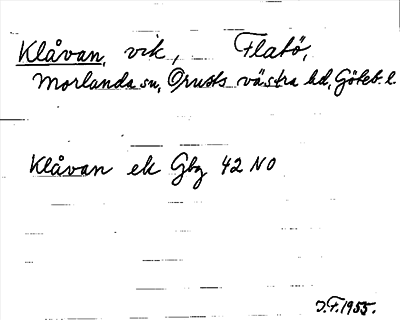 Klåvan, vik, Flatö,
Morlanda sn, Orusts västra hd, Göteb. l.
Klåvan ek Gbg 42 NO
J.F. 1955.